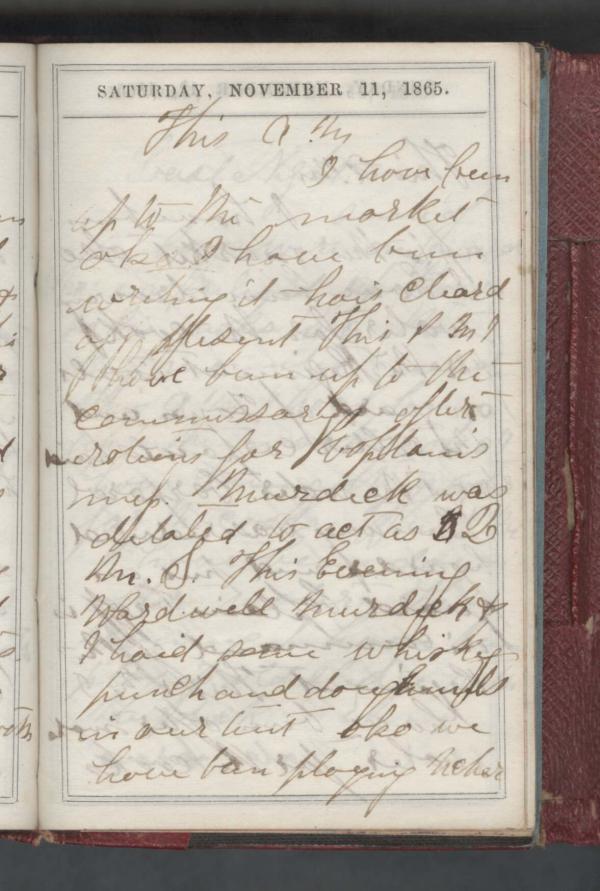 SATURDAY, NOVEMBER 11, 1865.
This A. M
I have been
up to the market
also I have been
writing it hais cleard
as present This P M I
I have been up to the
commissary after
rotions for Coptains
mess. Murdick was
detaled to act as Q
M. S. This Evening
Wardwell Murdick &
I haid some whisky
punch and doughnuts
in our tent also we
have ben playing